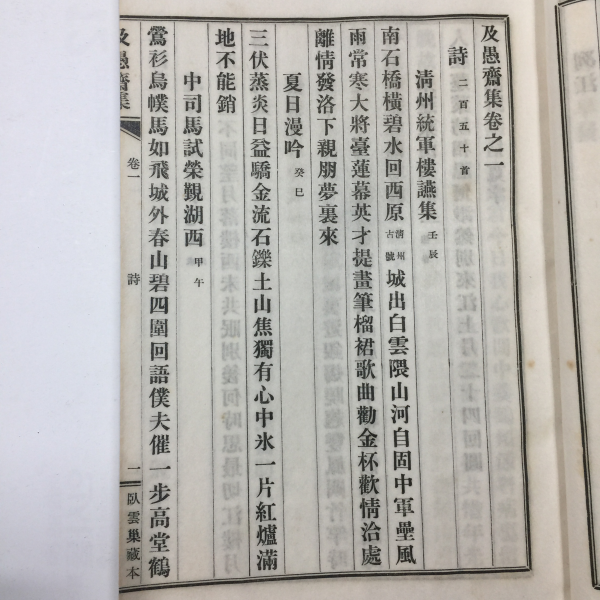 及愚齋集卷之一
詩 二百五十首
淸州統軍樓讌集 壬辰
南石橋橫碧水回西原 淸州古號 城出白雲隈山河自固中軍壘風
雨常寒大將臺蓮幕英才提畫筆榴裙歌曲勸金杯歡情洽處
離情發洛下親朋夢裏來
夏日漫吟 癸巳
三伏蒸炎日益驕金流石鑠土山焦獨有心中氷一片紅爐滿
地不能銷
中司馬試榮覲湖西 甲午
鶯衫烏幞馬如飛城外春山碧四圍回語僕夫催一步高堂鶴
及愚齋集 卷一 詩 一 臥雲巢藏本